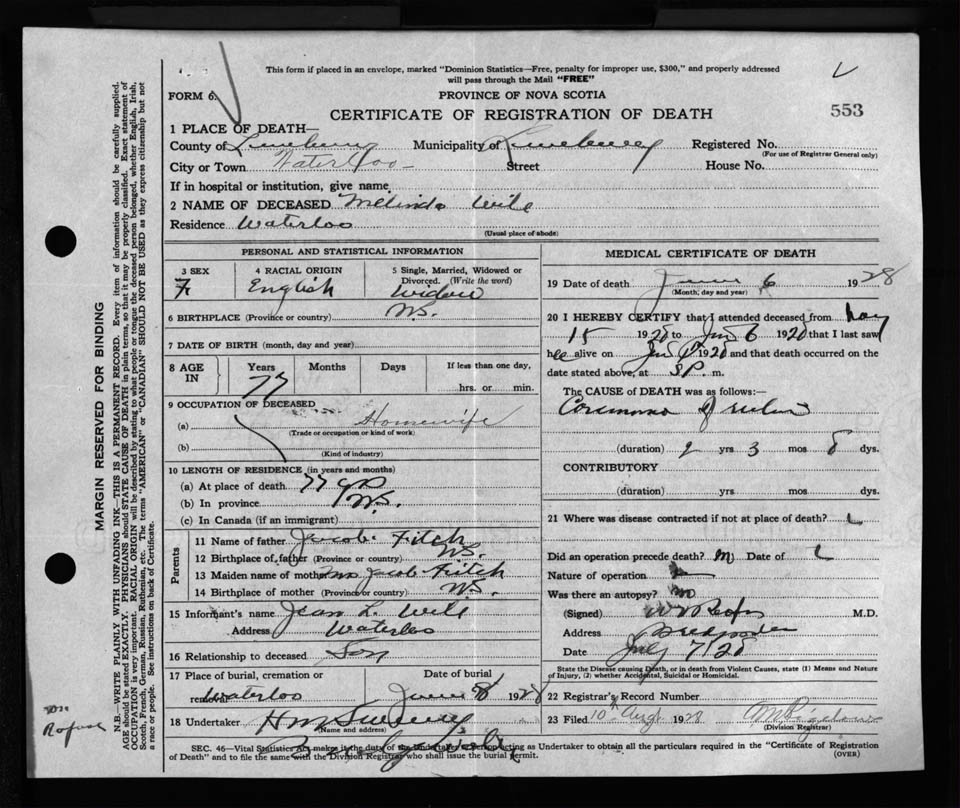 This form if placed in an envelope, marked "Dominion Statistics—Free, penalty for improper use, $300," and properly addressed
will pass through the Mail "FREE"
FORM 6.
PROVINCE OF NOVA SCOTIA
553
CERTIFICATE OF REGISTRATION OF DEATH
1 PLACE OF DEATH—
County of Lunenburg Municipality of Lunenburg Registered No.
(For use of Registrar General only)
City or Town Waterloo Street House No.
If in hospital or institution, give name
2 NAME OF DECEASED Melinda Wile
Residence Waterloo
(Usual place of abode)
PERSONAL AND STATISTICAL INFORMATION
3 SEX 4 RACIAL ORIGIN 5 Single, Married, Widowed or
Divorced. (Write the word)
F English Widow
6 BIRTHPLACE (Province or country) N.S.
7 DATE OF BIRTH (month, day and year)
8 AGE IN Years Months Days If less than one day,
77 hrs. or min.
9 OCCUPATION OF DECEASED
(a) Housewife
(Trade or occupation or kind of work)
(b)
(Kind of industry)
10 LENGTH OF RESIDENCE (in years and months)
(a) At place of death 77 yrs
(b) In province N.S.
(c) In Canada (if an immigrant)
Parents
11 Name of father Jacob Fitch
12 Birthplace of father (Province or country) N.S.
13 Maiden name of mother Mrs Jacob Fitch
14 Birthplace of mother (Province or country) N.S.
15 Informant's name L. Wile
Address Waterloo
16 Relationship to deceased Son
17 Place of burial, cremation or Date of burial
removal Waterloo June 8 1928
18 Undertaker
(Name and address)
MEDICAL CERTIFICATE OF DEATH
19 Date of death June 6 1928
(Month, day and year)
20 I HEREBY CERTIFY that I attended deceased from May
15 1928 to Jun 6 1928 that I last saw
alive on 1928 and that death occurred on
date stated above, at P. m.
The CAUSE of DEATH was as follows:—
of
(duration) 2 yrs 3 mos 8 dys.
CONTRIBUTORY
(duration) yrs mos dys.
21 Where was disease contracted if not at place of death?
Did an operation precede death? Date of
Nature of operation
Was there an autopsy? no
(Signed) M.D.
Address Bridgewater
Date 7/28
State the Disease causing Death, or in death from Violent Causes, state (1) Means and Nature
of Injury, (2) whether Accidental, Suicidal or Homicidal.
22 Registrar's Record Number
23 Filed 10th Augt 1928
(Division Registrar)
SEC. 46—Vital Statistics Act makes it the duty of the undertaker or person acting as Undertaker to obtain all the particulars required in the "Certificate of Registration
of Death" and to file the same with the Division Registrar who shall issue the burial permit. (OVER)
MARGIN RESERVED FOR BINDING
N.B.—WRITE PLAINLY WITH UNFADING INK—THIS IS A PERMANENT RECORD. Every item of information should be carefully supplied.
AGE should be stated EXACTLY. PHYSICIANS should STATE CAUSE OF DEATH in plain terms, so that it may be properly classified. Exact statement of
OCCUPATION is very important. RACIAL ORIGIN will be described by stating to what people or tongue the deceased person belonged, whether English, Irish,
Scotch, French, German, Russian, Ruthenian, etc. The terms "AMERICAN" or "CANADIAN" SHOULD NOT BE USED as they express citizenship but not
a race or people. See instructions on back of Certificate.